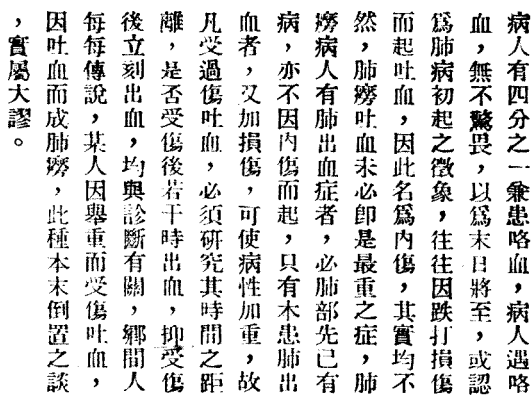 病人有四分之一兼患咯血，病人遇咯
血，無不驚畏，以爲末日將至，或認
爲肺病初起之徵象，往往因跌打損傷
而起吐血，因此名爲内傷，其實均不
然，肺癆吐血未必卽是最重之症，肺
癆病人有肺出血症者，必肺部先已有
病，亦不因内傷而起，只有本患肺出
血者，又加損傷，可使病性加重，故
凡受過傷吐血，必須研究其時間之距
離，是否受傷後若干時出血，抑受傷
後立刻出血，均與診斷有關，鄉間人
每每傳說，某人因舉重而受傷吐血，
因吐血而成肺癆，此種本末倒置之談
，實屬大謬。